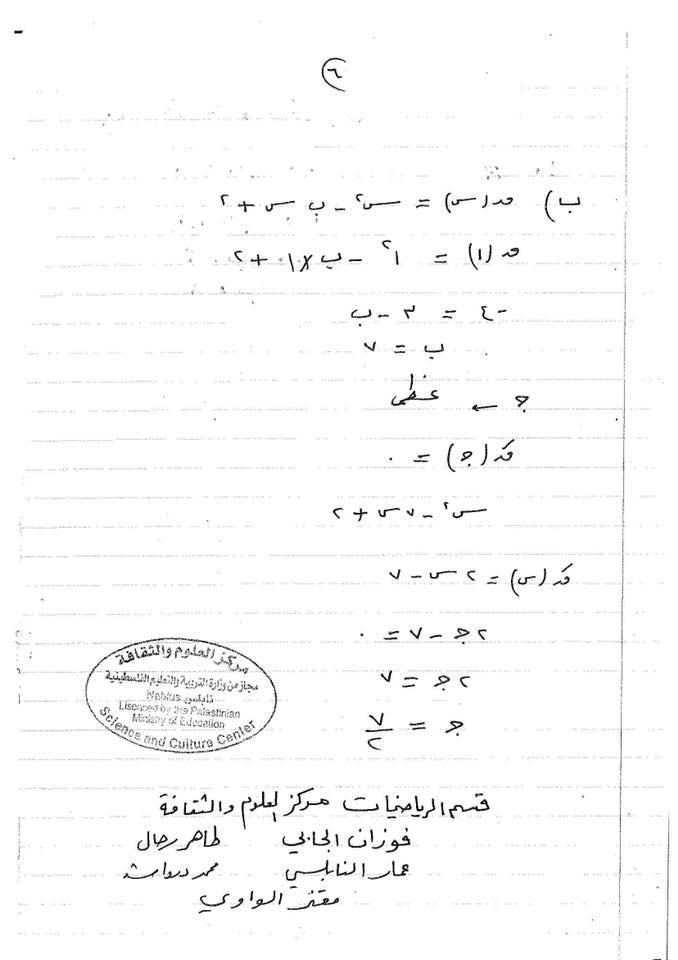 (٦)
ب) قہ(س) = س٢ - ب س + ٢
قہ(١) = ١٢ - ب×١ + ٢
-٤ = ٣ - ب
ب = ٧
جـ ← عظمى
قہَ(جـ) = ٠
س٢ - ٧س + ٢
قہَ(س) = ٢س - ٧
٢جـ - ٧ = ٠
٢جـ = ٧
جـ = ٧/٢
مركز العلوم والثقافة
مجاز من وزارة التربية والتعليم الفلسطينية
نابلس Nablus
Lisenced by the Palestinian
Ministry of Education
Science and Culture Center
قسم الرياضيات مركز العلوم والثقافة
فوزان الجابي طاهر رحال
عمار النابلسي محمد دروا
معتز الواوي